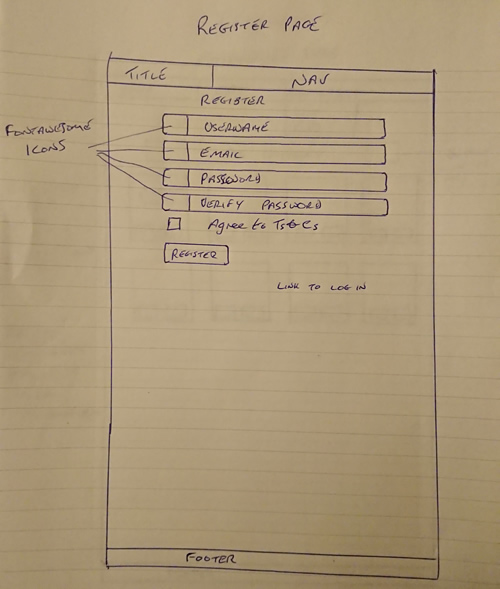 REGISTER PAGE
TITLE NAV
REGISTER
FONTAWESOME
ICONS
USERNAME
EMAIL
PASSWORD
VERIFY PASSWORD
Agree to Ts&Cs
REGISTER
LINK TO LOG IN
FOOTER